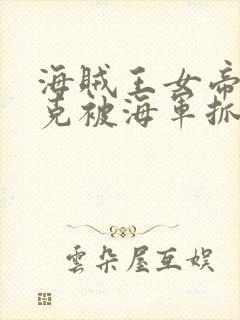 海賊王女帝
克被海軍抓
雲朵屋互娛